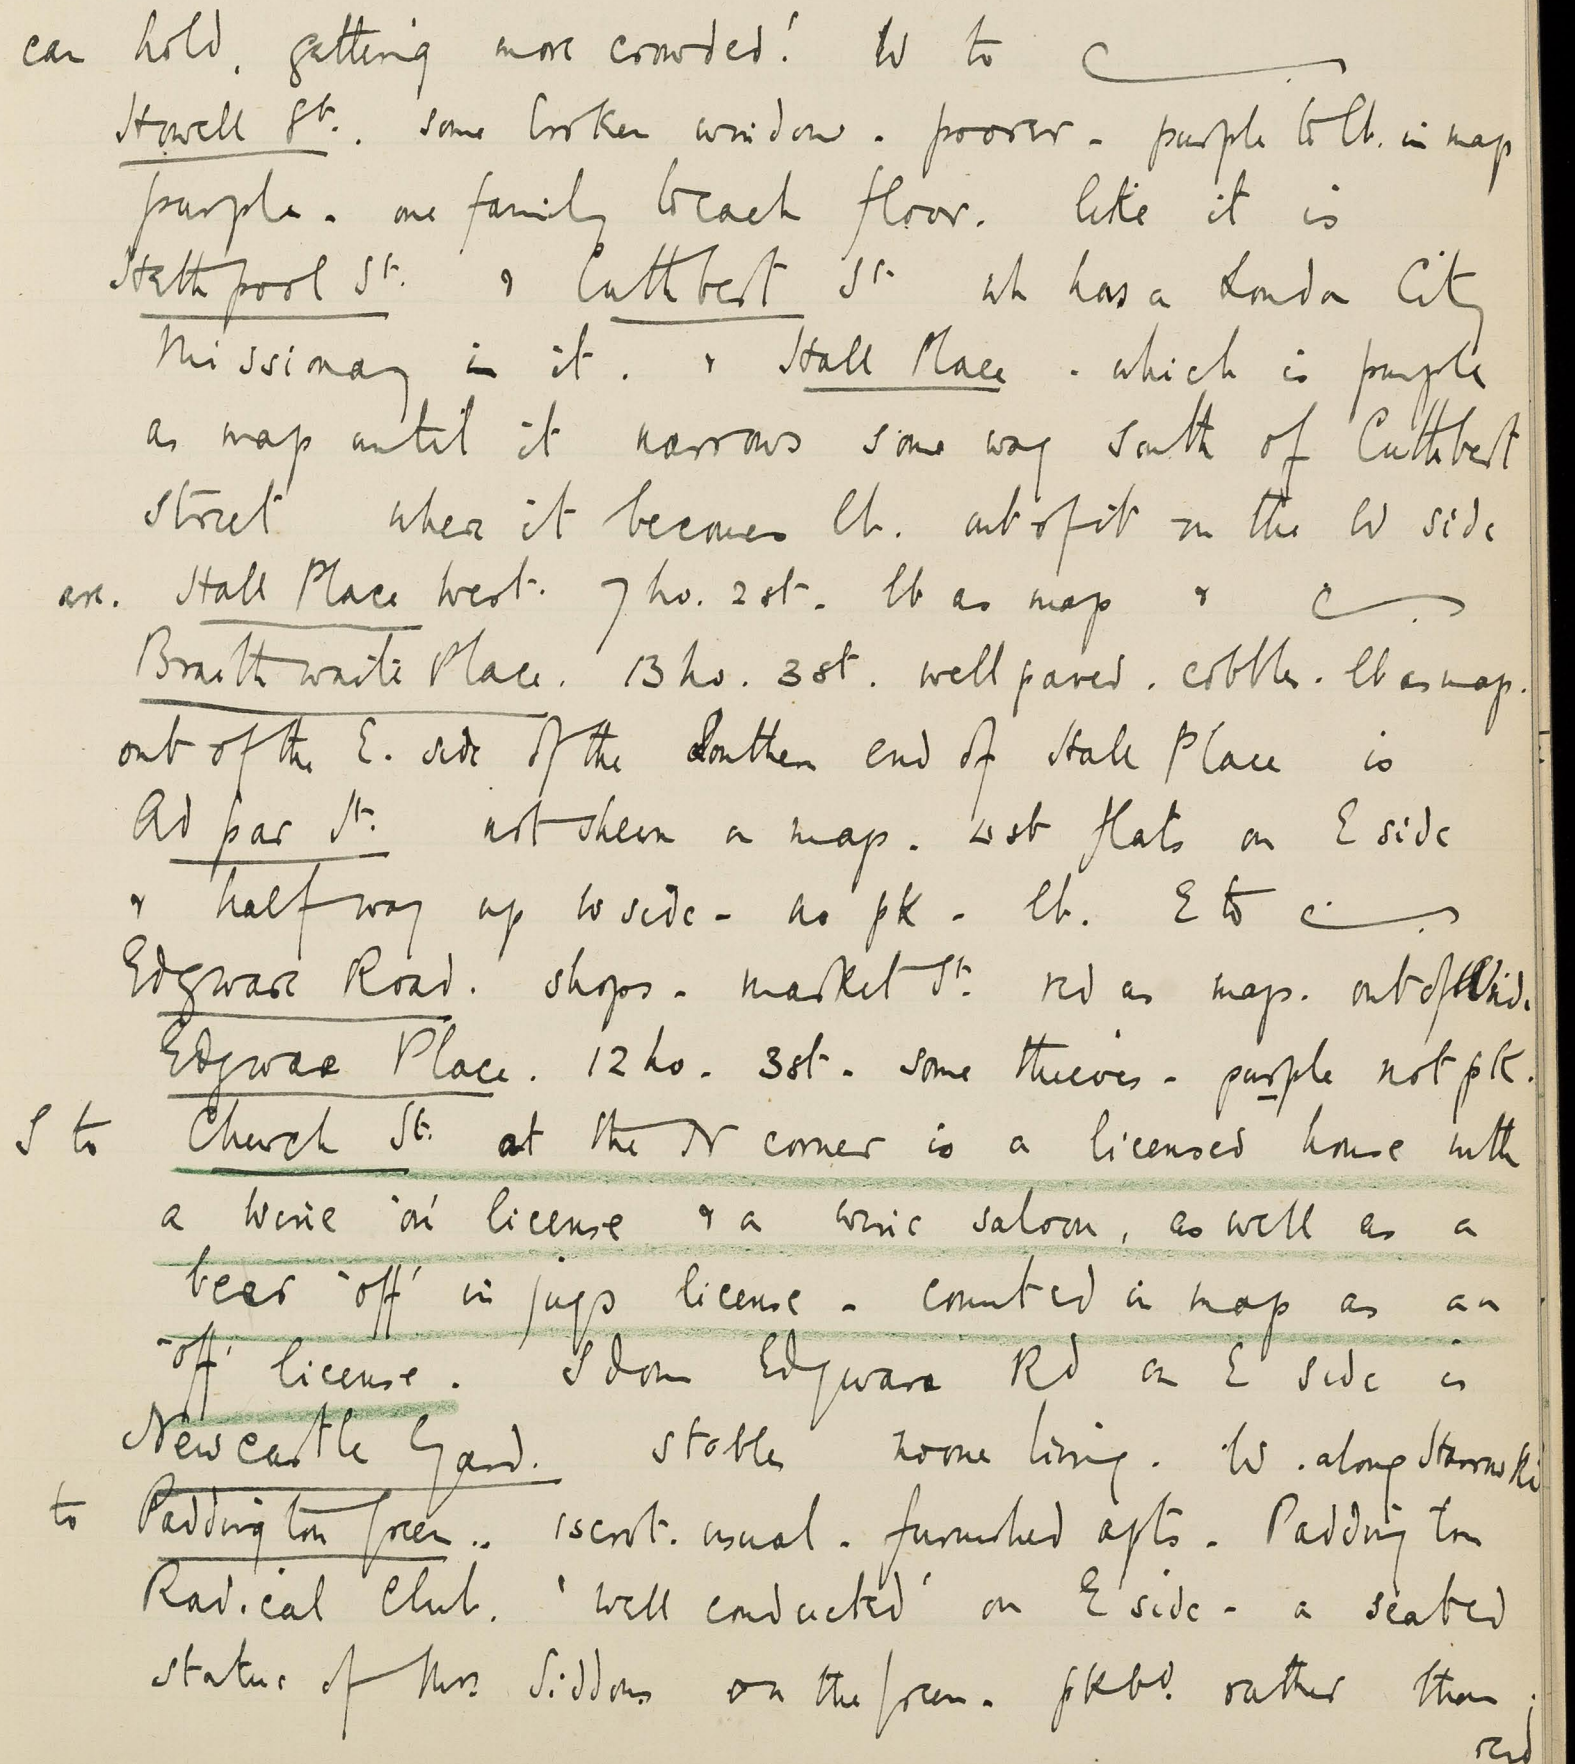 can hold, getting more crowded! W to
Howell St. . some broken window - poorer - purple to lb. in map
purple - one family to each floor. like it is
Hethpool St. & Cuthbert St wh has a London City
Missionary in it . & Hall Place - which is purple
as map until it narrows some way south of Cuthbert
street where it becomes lb. out of it on the W side
are. Hall Place West. 7 ho. 2 st. lb as map &
Braithwaite Place. 13 ho. 3 st. well paved . cobbles . lb as map.
out of the E. side of the Southern end of Hall Place is
Adpar St. not shewn on map. 4 st flats on E side
& half way up W side - no pk - lb. E to
Edgware Road. shops - market St. red as map. out of W side
Edgware Place. 12 ho - 3 st - some thieves - purple not pk.
S to Church St. at the N corner is a licensed house with
a wine 'on' license & a wine saloon, as well as a
beer 'off' in jugs license - counted in map as an
'off' license . S down Edgware Rd on E side is
Newcastle Yard. stables no one living . W . along Harrow Rd
to Paddington Green .. usual . furnished apts . Paddington
Radical Club. 'well conducted' on E side - a seated
statue of Mrs Siddons on the green - pkbd. rather than
red